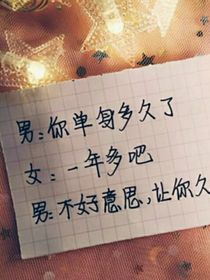 男:你单身多久了
女:一年多吧
男:不好意思,让你久